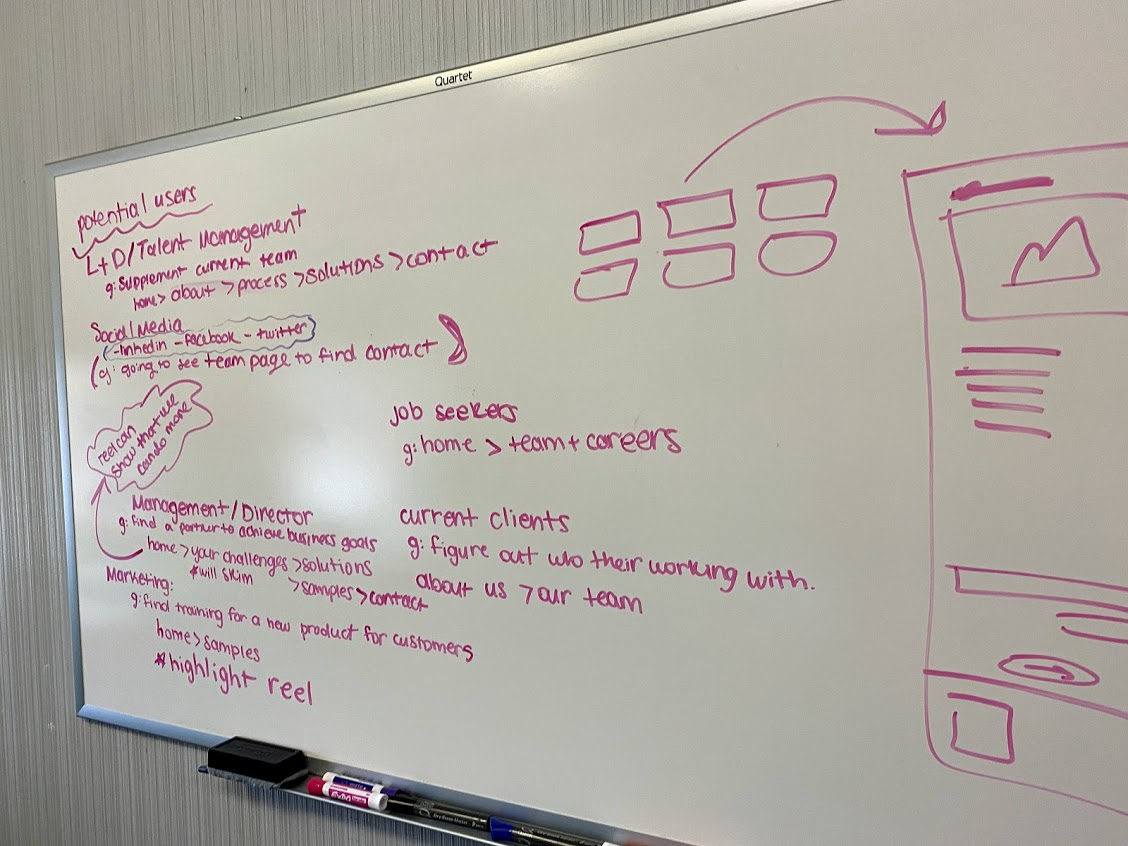 Quartet
potential users
L+D/Talent Management
g: supplement current team
home > about > process > solutions > contact
Social Media
(-linkedin - facebook - twitter)
(g: going to see team page to find contact)
reel can
show that we
can do more
Management/Director
g: find a partner to achieve business goals
home > your challenges > solutions
*will skim > samples > contact
Marketing:
g: find training for a new product for customers
home > samples
*highlight reel
job seekers
g: home > team + careers
current clients
g: figure out who their working with.
about us > our team
EXPO